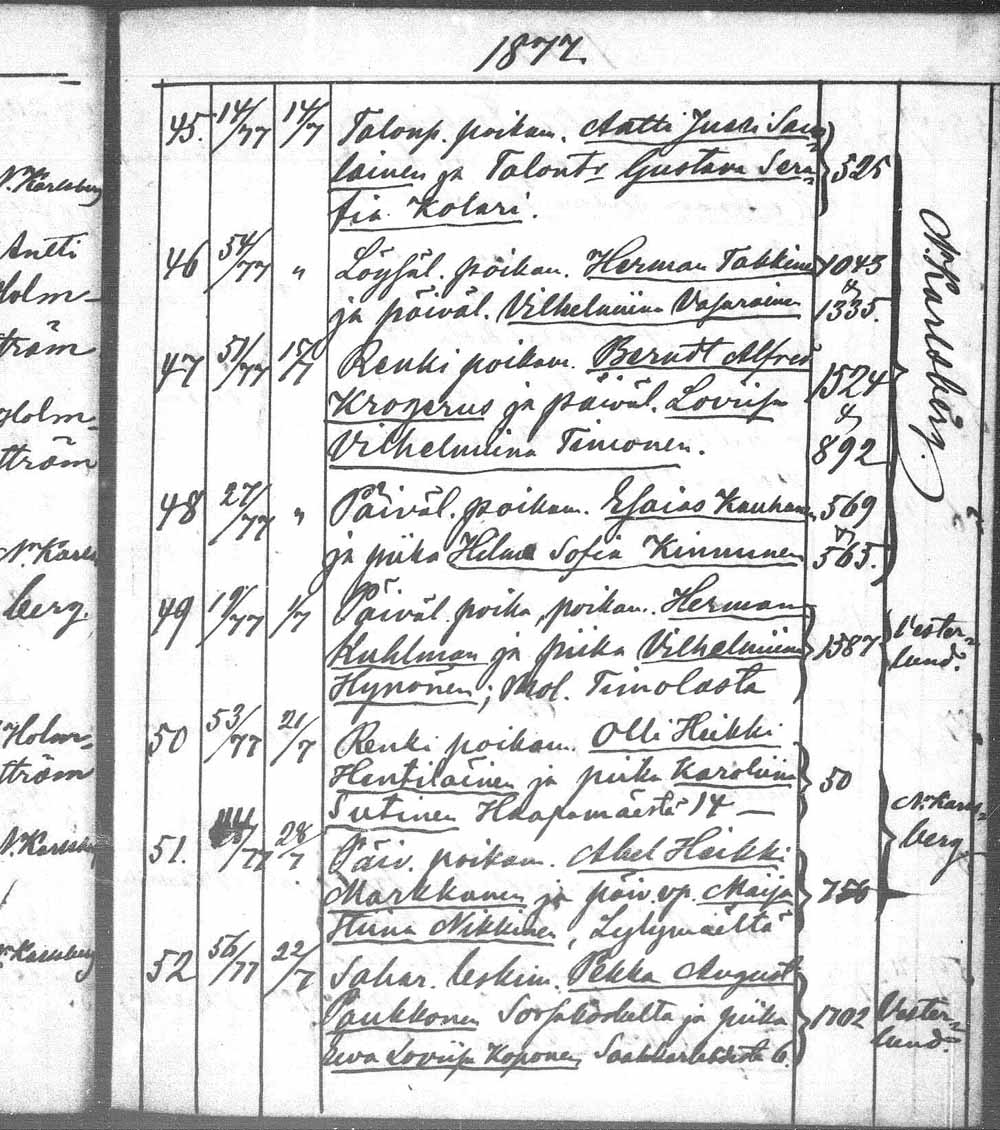 1877.
N. Karlsberg
Antti
Holm-
ström
Holm-
ström
N. Karls-
berg.
Holm-
ström
N. Karlsberg
N. Karlsberg
45. 14/77 14/7 Talonp. poikam. Antti Jussi Sa
lainen ja Talontr Gustava Sera- 525
fia Kolari.
46 54/77 " Löysäl. poikam. Herman Takkinen 1043
ja päiväl. Vilhelmiina Vasarainen & 1335.
47 51/77 15/7 Renki poikam. Berndt Alfred
Krogerus ja päiväl. Loviisa 1524 &
Vilhelmiina Timonen. 892
N. Karlsberg.
48 27/77 " Päiväl. poikam. Esaias Kauhanen 569
ja piika Hilma Sofia Kinnunen & 563.
49 19/77 1/7 Päiväl. poika, poikam. Herman
Kuhlman ja piika Vilhelmiina 1387 Vester-
Hynönen; mol. Timolasta lund.
50 53/77 21/7 Renki poikam. Olli Heikki
Hentiläinen ja piika Karoliina 50
Sutinen Haapamäestä 14 — N. Karls-
berg.
51. /77 28/7 Päiv. poikam. Abel Heikki
Markkanen ja päiv. vp. Maija 756
Stiina Nikkinen, Lylymäeltä
52 56/77 22/7 Sahar. leskim. Pekka August
Paukkonen Sorsakoskelta ja piika 1702 Vester-
Eva Loviisa Koponen 6. lund.